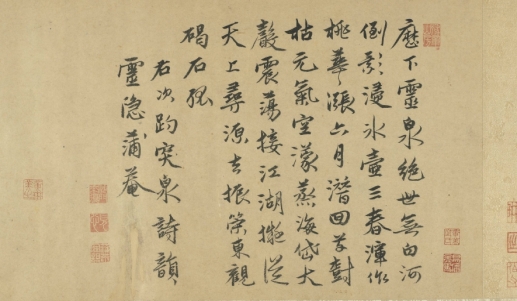 歷下靈泉絕世無白河
倒影浸冰壺三春渾作
桃華漲六月潛回草樹
枯元氣空濛蒸海岱大
聲震蕩接江湖擬從
天上尋源去振策東觀
碣石孤
右次趵突泉詩韻
靈隐蒲菴